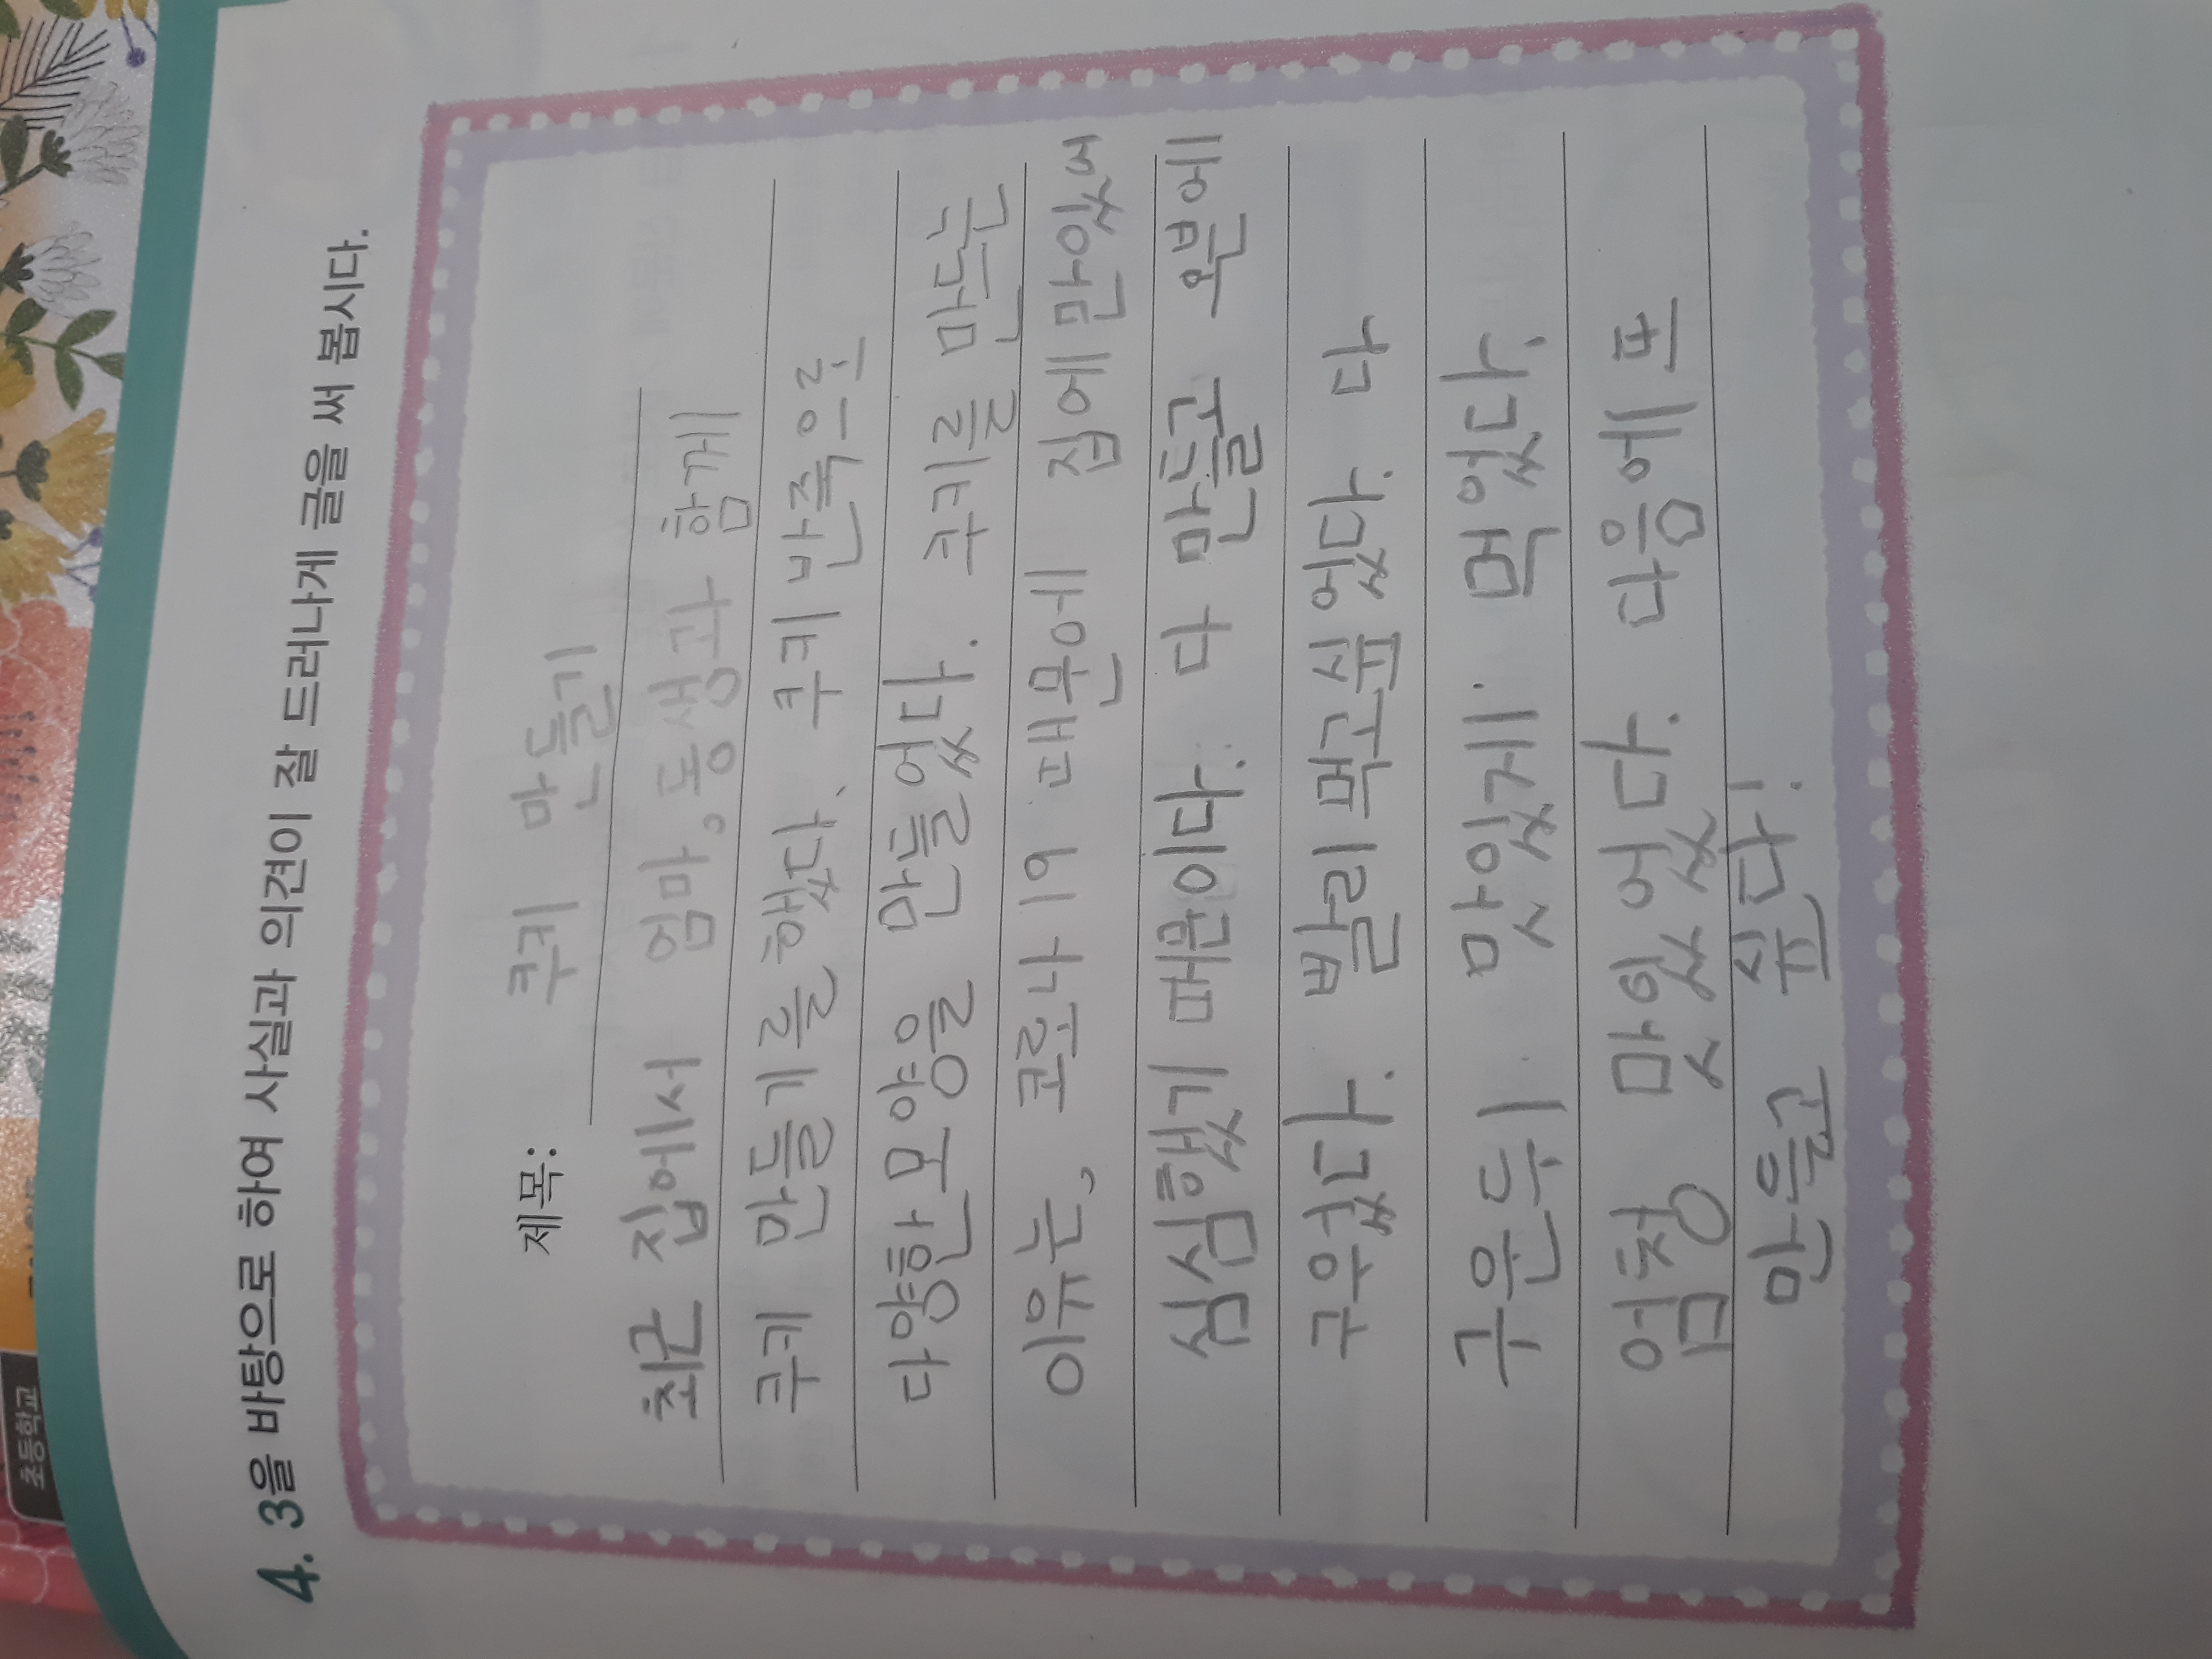 초등학교
4. 3을 바탕으로 하여 사실과 의견이 잘 드러나게 글을 써 봅시다.
제목: 쿠키 만들기
최근 집에서 엄마, 동생과 함께
쿠키 만들기를 했다. 쿠키 반죽으로
다양한 모양을 만들었다. 쿠키를 만드는
이유는, 코로나 19 때문에 집에만 있어
심심했기 때문이다. 다 만들고 오븐에
구웠다. 빨리 먹고 싶었다. 다
구운 뒤 맛있게 먹었다.
엄청 맛있었다. 다음에 또
만들고 싶다!